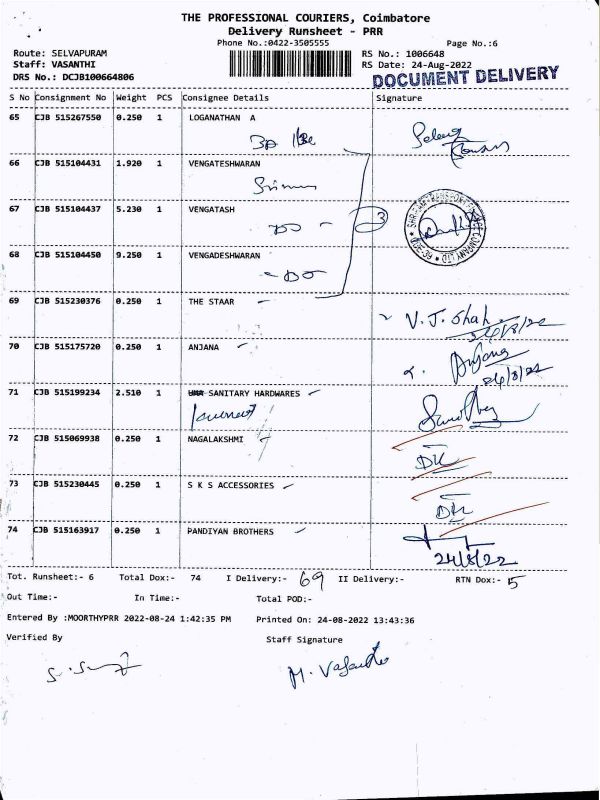 THE PROFESSIONAL COURIERS, Coimbatore
Delivery Runsheet - PRR
Phone No.:0422-3505555
Page No.:6
Route: SELVAPURAM
RS No.: 1006648
Staff: VASANTHI
RS Date: 24-Aug-2022
DRS No.: DCJB100664806
DOCUMENT DELIVERY
S No Consignment No Weight PCS Consignee Details Signature
65 CJB 515267550 0.250 1 LOGANATHAN A
66 CJB 515104431 1.920 1 VENGATESHWARAN
67 CJB 515104437 5.230 1 VENGATASH
3
68 CJB 515104450 9.250 1 VENGADESHWARAN
69 CJB 515230376 0.250 1 THE STAAR
V.J. Shah
24/8/22
70 CJB 515175720 0.250 1 ANJANA
Anjana
24/8/22
71 CJB 515199234 2.510 1 SANITARY HARDWARES
72 CJB 515069938 0.250 1 NAGALAKSHMI
73 CJB 515230445 0.250 1 S K S ACCESSORIES
74 CJB 515163917 0.250 1 PANDIYAN BROTHERS
24/8/22
Tot. Runsheet:- 6 Total Dox:- 74 I Delivery:- 69 II Delivery:- RTN Dox:- 5
Out Time:- In Time:- Total POD:-
Entered By :MOORTHYPRR 2022-08-24 1:42:35 PM Printed On: 24-08-2022 13:43:36
Verified By Staff Signature
M. Vasantha